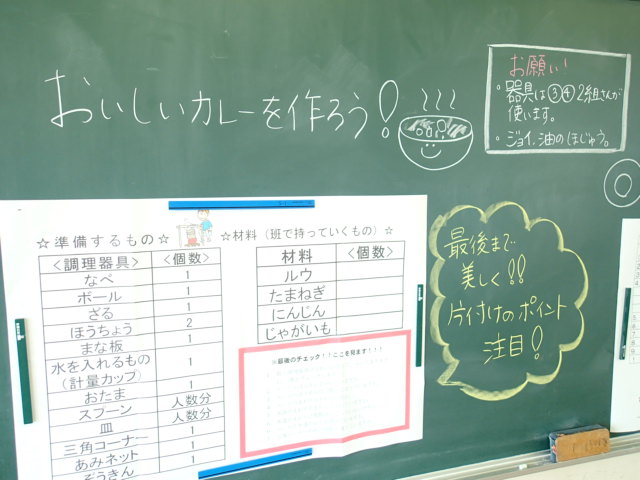 おいしいカレーを作ろう!
お願い!
・器具は③④2組さんが
使います。
・ジョイ、油のほじゅう。
☆準備するもの☆
<調理器具> <個数>
なべ 1
ボール 1
ざる 1
ほうちょう 2
まな板 1
水を入れるもの
(計量カップ) 1
おたま 1
スプーン 人数分
皿 人数分
三角コーナー 1
あみネット 1
ぞうきん
☆材料(班で持っていくもの)☆
材料 <個数>
ルウ
たまねぎ
にんじん
じゃがいも
※最後のチェック!!ここを見ます!!!
最後まで
美しく!!
片付けのポイント
注目!